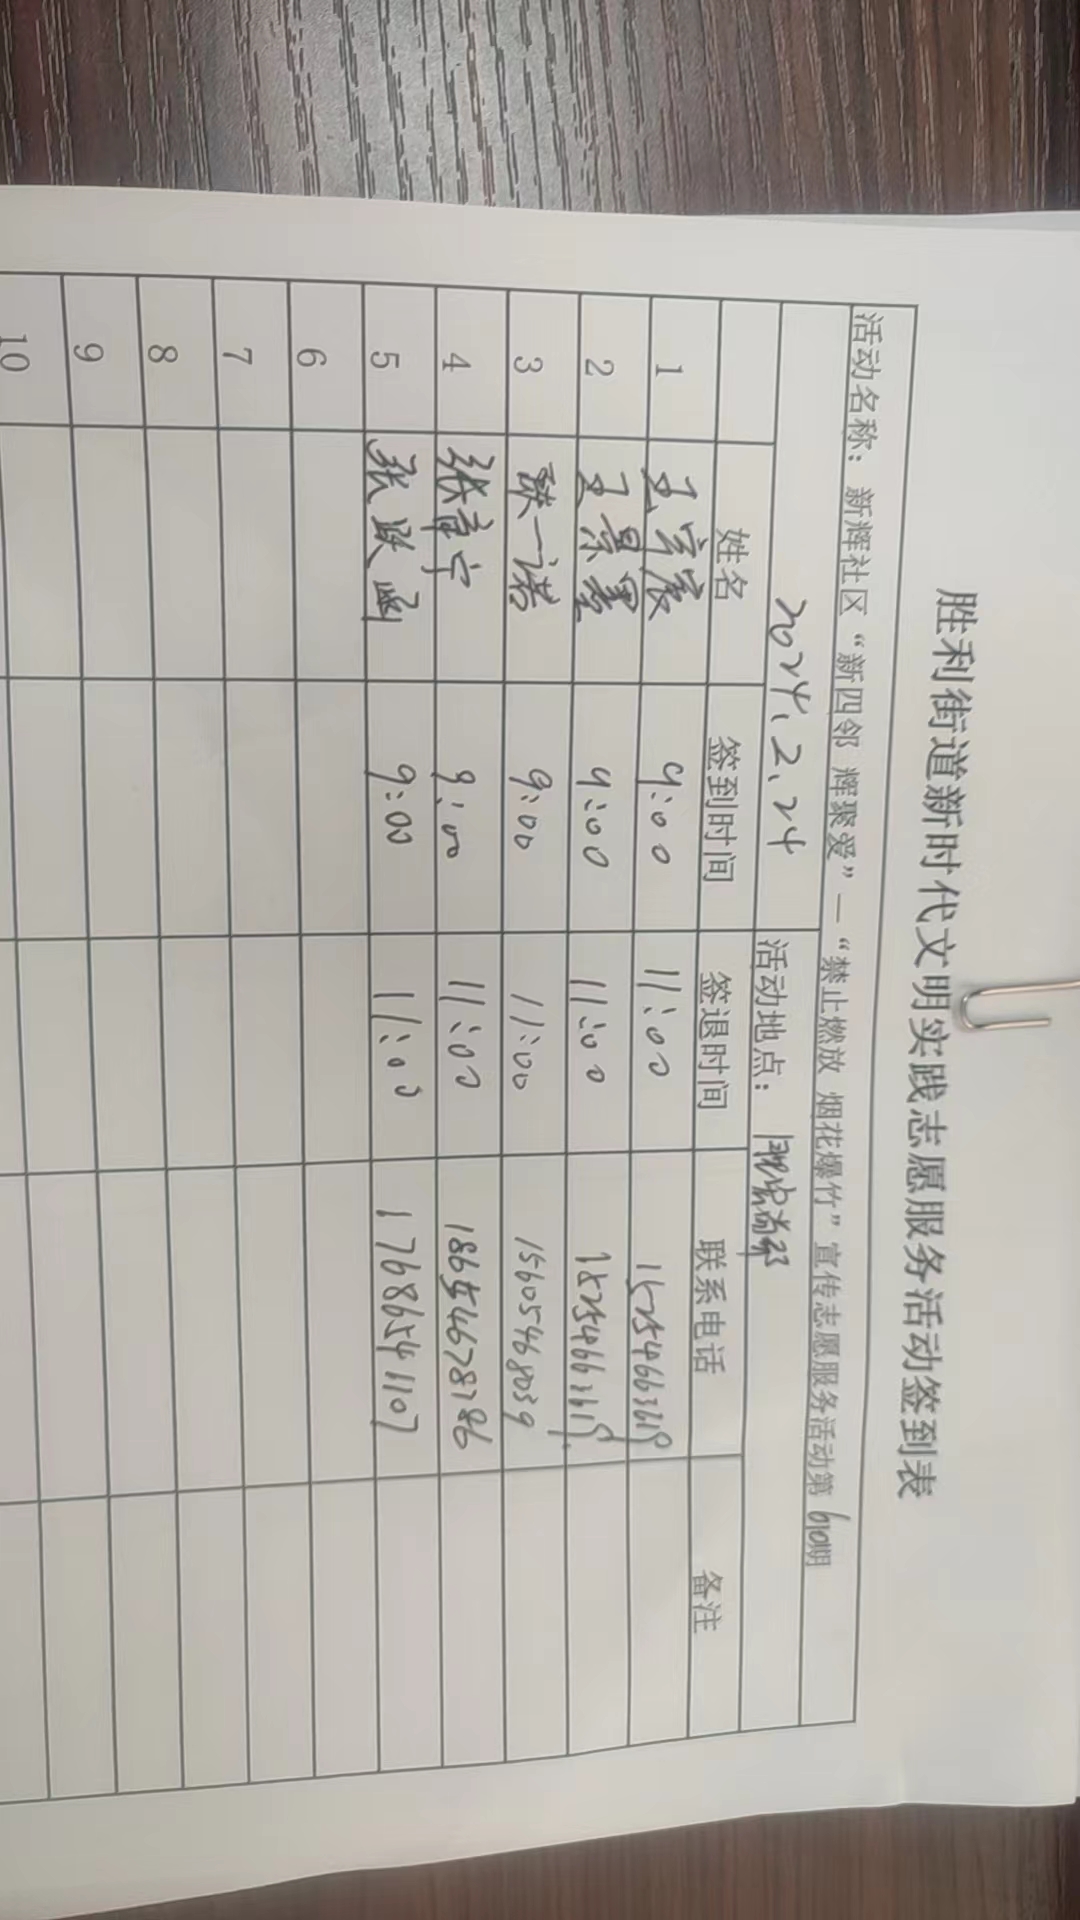 胜利街道新时代文明实践志愿服务活动签到表
活动名称：新辉社区“新四邻 辉聚爱”—“禁止燃放 烟花爆竹”宣传志愿服务活动第 期
2024.2.24 活动地点：
姓名 签到时间 签退时间 联系电话 备注
1 王宇宸 9:00 11:00 15254663619
2 王景墨 9:00 11:00 15254663619
3 一诺 9:00 11:00 15605468039
4 张 宁 9:00 11:00
5 张跃函 9:00 11:00 17686541107
6
7
8
9
10